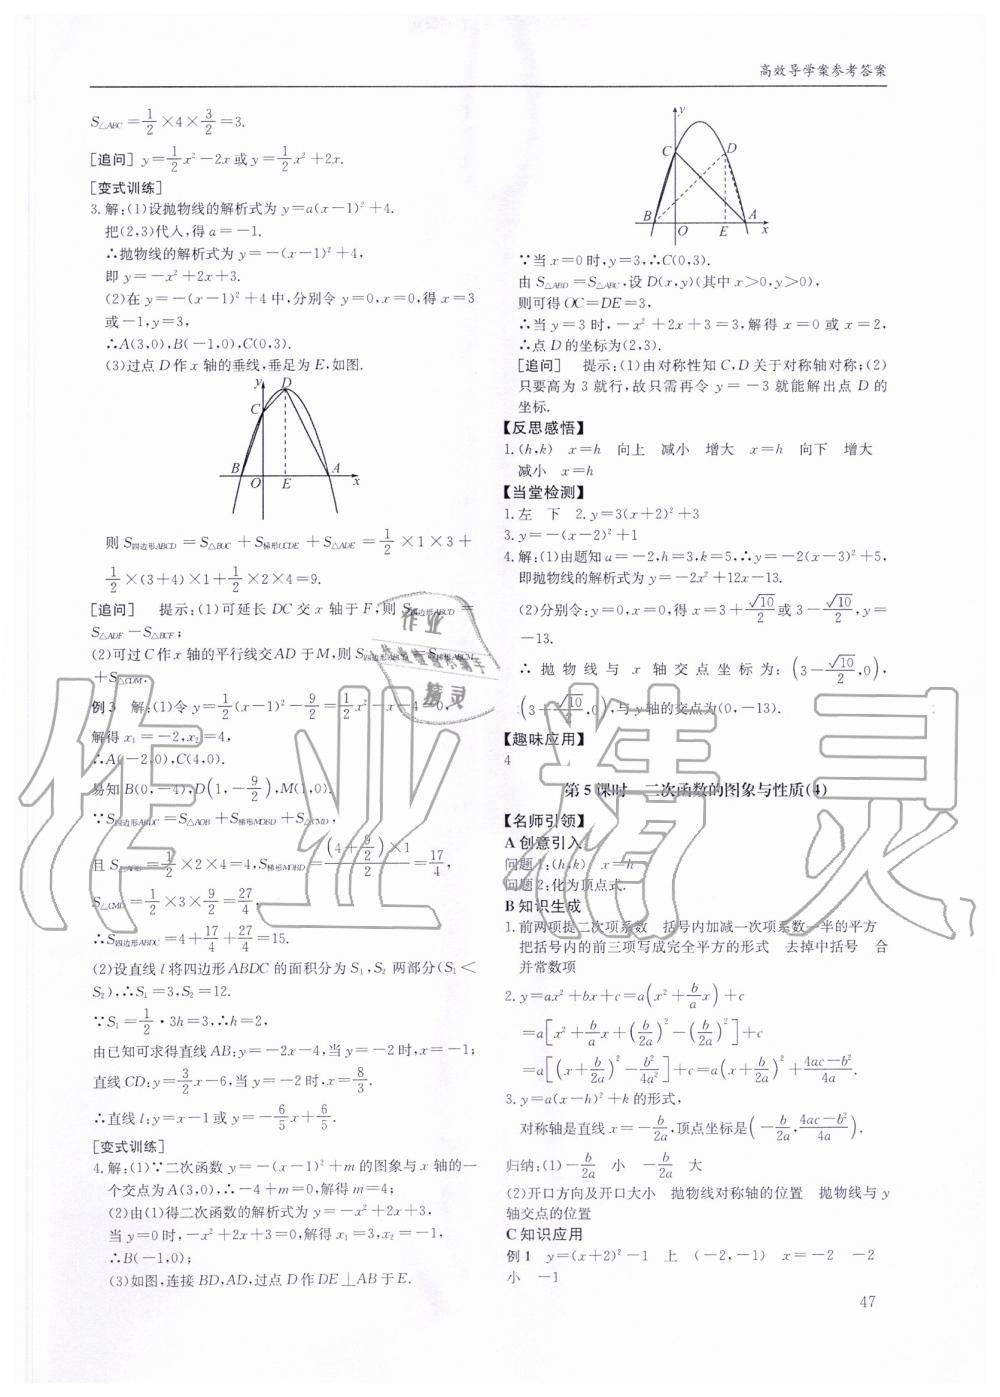 高效导学案参考答案
S△ABC=1/2×4×3/2=3.
[追问] y=1/2x²-2x或y=1/2x²+2x.
[变式训练]
3.解:(1)设抛物线的解析式为y=a(x-1)²+4.
把(2,3)代人,得a=-1.
∴抛物线的解析式为y=-(x-1)²+4,
即y=-x²+2x+3.
(2)在y=-(x-1)²+4中,分别令y=0,x=0,得x=3
或-1,y=3,
∴A(3,0),B(-1,0),C(0,3).
(3)过点D作x轴的垂线,垂足为E,如图.
y D
C
B O E A x
则S四边形ABCD=S△BOC+S梯形OCDE+S△ADE=1/2×1×3+
1/2×(3+4)×1+1/2×2×4=9.
[追问] 提示:(1)可延长DC交x轴于F,则S四边形ABCD=
S△ADF-S△BCF;
(2)可过C作x轴的平行线交AD于M,则S四边形ABCD=S梯形ABCM
+S△CDM.
例3 解:(1)令y=1/2(x-1)²-9/2=1/2x²-x-4=0,
解得x₁=-2,x₂=4,
∴A(-2,0),C(4,0).
易知B(0,-4),D(1,-9/2),M(1,0).
∵S四边形ABDC=S△AOB+S梯形MOBD+S△CMD,
且S△AOB=1/2×2×4=4,S梯形MOBD=(4+9/2)×1/2=17/4,
S△CMD=1/2×3×9/2=27/4,
∴S四边形ABDC=4+17/4+27/4=15.
(2)设直线l将四边形ABDC的面积分为S₁,S₂两部分(S₁<
S₂),∴S₁=3,S₂=12.
∵S₁=1/2·3h=3,∴h=2,
由已知可求得直线AB:y=-2x-4,当y=-2时,x=-1;
直线CD:y=3/2x-6,当y=-2时,x=8/3.
∴直线l:y=x-1或y=-6/5x+6/5.
[变式训练]
4.解:(1)∵二次函数y=-(x-1)²+m的图象与x轴的一
个交点为A(3,0),∴-4+m=0,解得m=4;
(2)由(1)得二次函数的解析式为y=-x²+2x+3,
当y=0时,-x²+2x+3=0,解得x₁=3,x₂=-1,
∴B(-1,0);
(3)如图,连接BD,AD,过点D作DE⊥AB于E.
y
C D
B O E A x
∵当x=0时,y=3,∴C(0,3).
由S△ABD=S△ABC,设D(x,y)(其中x>0,y>0),
则可得OC=DE=3,
∴当y=3时,-x²+2x+3=3,解得x=0或x=2,
∴点D的坐标为(2,3).
[追问] 提示:(1)由对称性知C,D关于对称轴对称;(2)
只要高为3就行,故只需再令y=-3就能解出点D的
坐标.
【反思感悟】
1.(h,k) x=h 向上 减小 增大 x=h 向下 增大
减小 x=h
【当堂检测】
1.左 下 2.y=3(x+2)²+3
3.y=-(x-2)²+1
4.解:(1)由题知a=-2,h=3,k=5,∴y=-2(x-3)²+5,
即抛物线的解析式为y=-2x²+12x-13.
(2)分别令:y=0,x=0,得x=3+√10/2或3-√10/2,y=
-13.
∴抛物线与x轴交点坐标为:(3-√10/2,0),
(3-√10/2,0),与y轴的交点为(0,-13).
【趣味应用】
4
第5课时 二次函数的图象与性质(4)
【名师引领】
A 创意引入
问题1:(h,k) x=h
问题2:化为顶点式.
B 知识生成
1.前两项提二次项系数 括号内加减一次项系数一半的平方
把括号内的前三项写成完全平方的形式 去掉中括号 合
并常数项
2.y=ax²+bx+c=a(x²+b/a x)+c
=a[x²+b/a x+(b/2a)²-(b/2a)²]+c
=a[(x+b/2a)²-b²/4a²]+c=a(x+b/2a)²+(4ac-b²)/4a.
3.y=a(x-h)²+k的形式,
对称轴是直线x=-b/2a,顶点坐标是(-b/2a,(4ac-b²)/4a).
归纳:(1)-b/2a 小 -b/2a 大
(2)开口方向及开口大小 抛物线对称轴的位置 抛物线与y
轴交点的位置
C 知识应用
例1 y=(x+2)²-1 上 (-2,-1) x=-2 -2
小 -1
47
作业精灵
作业
精灵